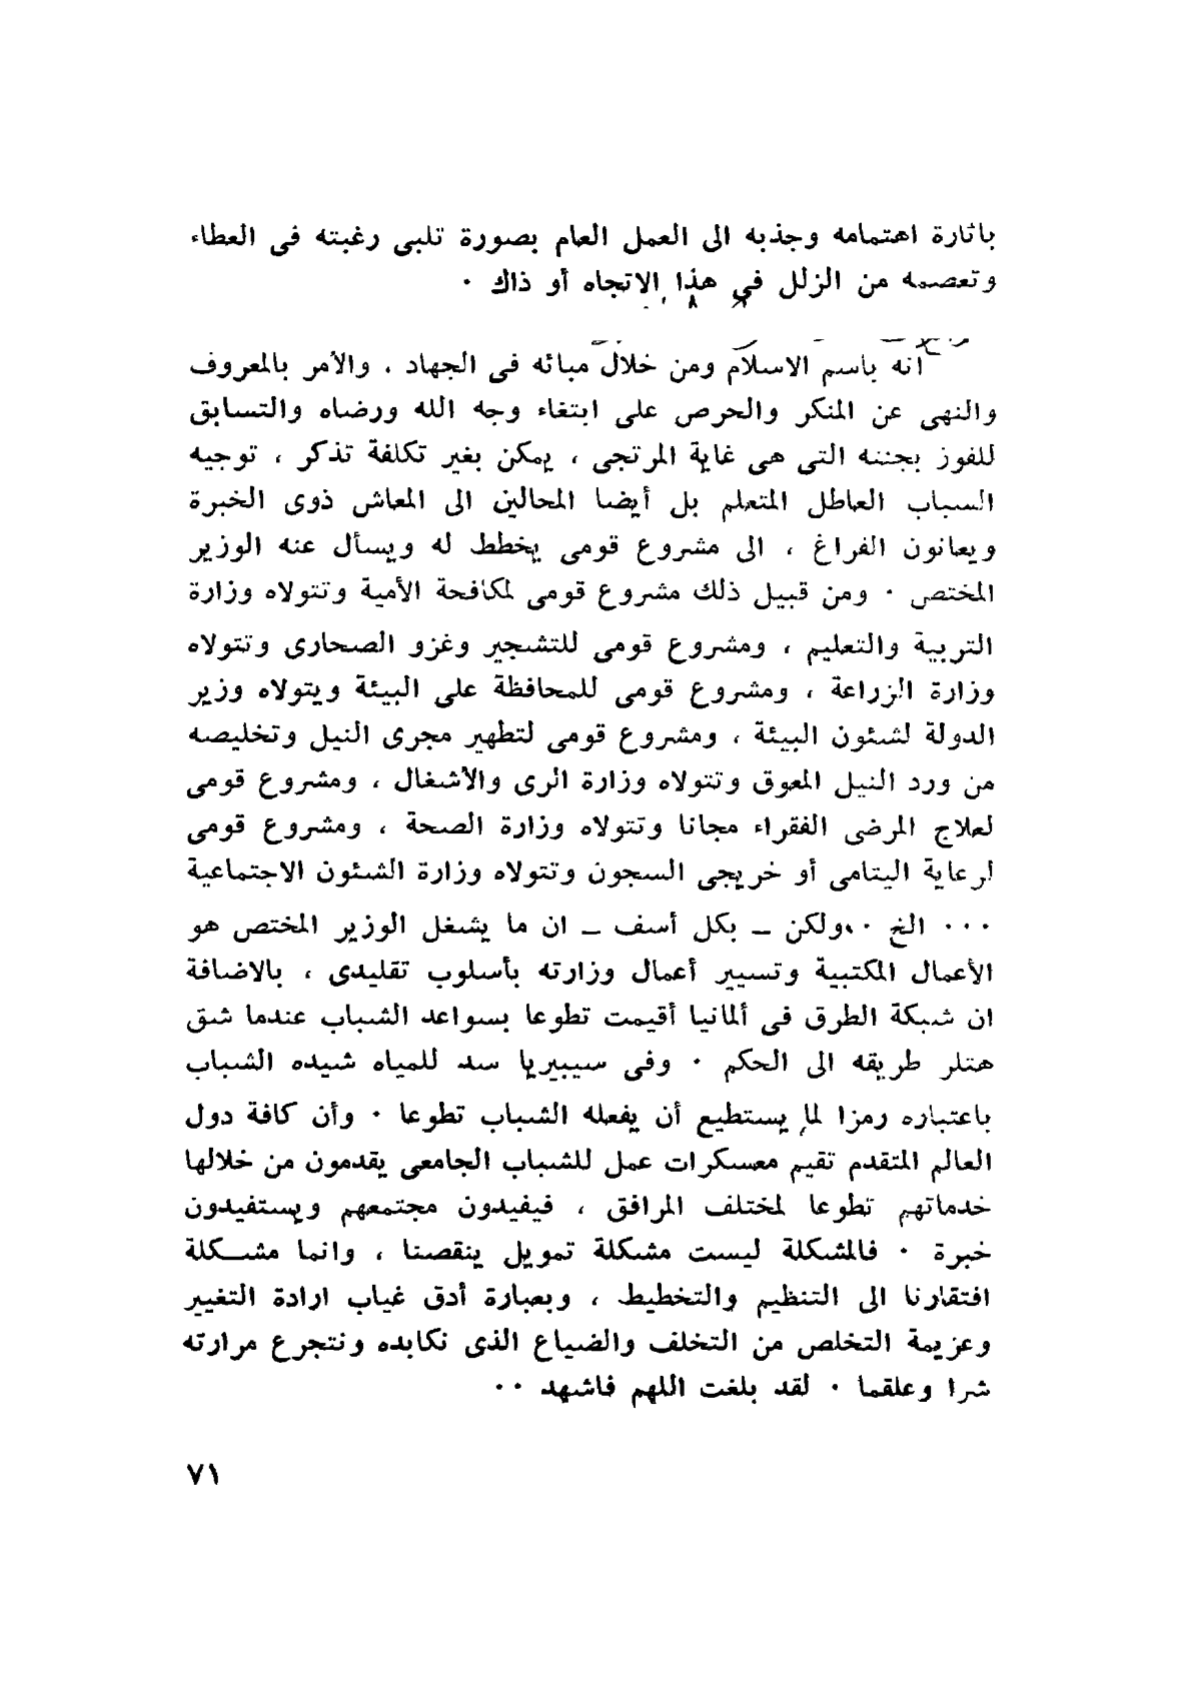 باثارة اهتمامه وجذبه الى العمل العام بصورة تلبى رغبته فى العطاء
وتعصمه من الزلل فى هذا الاتجاه أو ذاك ·
انه باسم الاسلام ومن خلال مبائه فى الجهاد ، والأمر بالمعروف
والنهى عن المنكر والحرص على ابتغاء وجه الله ورضاه والتسابق
للفوز بجنته التى هى غاية المرتجى ، يمكن بغير تكلفة تذكر ، توجيه
الشباب العاطل المتعلم بل أيضا المحالين الى المعاش ذوى الخبرة
ويعانون الفراغ ، الى مشروع قومى يخطط له ويسأل عنه الوزير
المختص · ومن قبيل ذلك مشروع قومى لمكافحة الأمية وتتولاه وزارة
التربية والتعليم ، ومشروع قومى للتشجير وغزو الصحارى وتتولاه
وزارة الزراعة ، ومشروع قومى للمحافظة على البيئة ويتولاه وزير
الدولة لشئون البيئة ، ومشروع قومى لتطهير مجرى النيل وتخليصه
من ورد النيل المعوق وتتولاه وزارة الرى والأشغال ، ومشروع قومى
لعلاج المرضى الفقراء مجانا وتتولاه وزارة الصحة ، ومشروع قومى
لرعاية اليتامى أو خريجى السجون وتتولاه وزارة الشئون الاجتماعية
··· الخ ·· ولكن ــ بكل أسف ــ ان ما يشغل الوزير المختص هو
الأعمال المكتبية وتسيير أعمال وزارته بأسلوب تقليدى ، بالاضافة
ان شبكة الطرق فى ألمانيا أقيمت تطوعا بسواعد الشباب عندما شق
هتلر طريقه الى الحكم · وفى سيبيريا سد للمياه شيده الشباب
باعتباره رمزا لما يستطيع أن يفعله الشباب تطوعا · وأن كافة دول
العالم المتقدم تقيم معسكرات عمل للشباب الجامعى يقدمون من خلالها
خدماتهم تطوعا لمختلف المرافق ، فيفيدون مجتمعهم ويستفيدون
خبرة · فالمشكلة ليست مشكلة تمويل ينقصنا ، وانما مشــكلة
افتقارنا الى التنظيم والتخطيط ، وبعبارة أدق غياب ارادة التغيير
وعزيمة التخلص من التخلف والضياع الذى نكابده ونتجرع مرارته
شرا وعلقما · لقد بلغت اللهم فاشهد ··
٧١